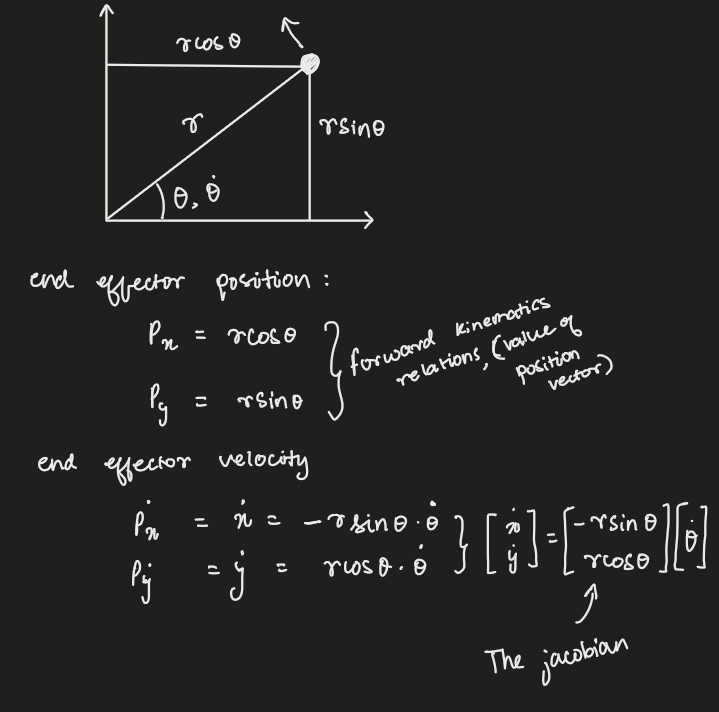 rcosθ
r
rsinθ
θ, θ̇
end effector position :
Pₓ = rcosθ
Pᵧ = rsinθ
forward kinematics
relations, (value of
position
vector)
end effector velocity
Ṗₓ = ẋ = -rsinθ · θ̇
Ṗᵧ = ẏ = rcosθ · θ̇
[ẋ ẏ] = [-rsinθ rcosθ] [θ̇]
The jacobian